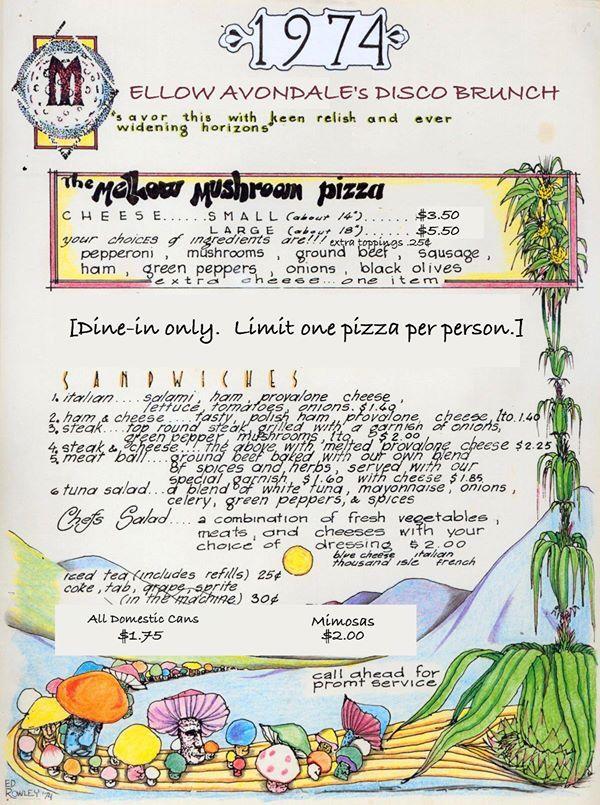 1974
MELLOW AVONDALE'S DISCO BRUNCH
"savor this with keen relish and ever
widening horizons"
The Mellow Mushroom pizza
CHEESE.....SMALL (about 14").......$3.50
LARGE (about 18").......$5.50
your choices of ingredients are!!! extra toppings .25¢
pepperoni, mushrooms, ground beef, sausage,
ham, green peppers, onions, black olives
extra cheese...one item
[Dine-in only. Limit one pizza per person.]
SANDWICHES
1. italian....salami, ham, provalone cheese,
lettuce, tomatoes, onions. $1.60
2. ham & cheese....tasty, polish ham, provalone, cheese, lto. 1.40
3. steak....top round steak, grilled with a garnish of onions,
green pepper, mushrooms, ltg. $2.00
4. steak & cheese....the above with melted provalone cheese $2.25
5. meat ball....ground beef baked with our own blend
of spices and herbs, served with our
special garnish, $1.60 with cheese $1.85
6 tuna salad...a blend of white tuna, mayonnaise, onions,
celery, green peppers, & spices
Chefs Salad.... a combination of fresh vegetables,
meats, and cheeses with your
choice of dressing $2.00
blue cheese italian
thousand isle french
iced tea (includes refills) 25¢
coke, tab, grape, sprite
(in the machine) 30¢
All Domestic Cans
$1.75
Mimosas
$2.00
call ahead for
promt service
ED
ROWLEY '74